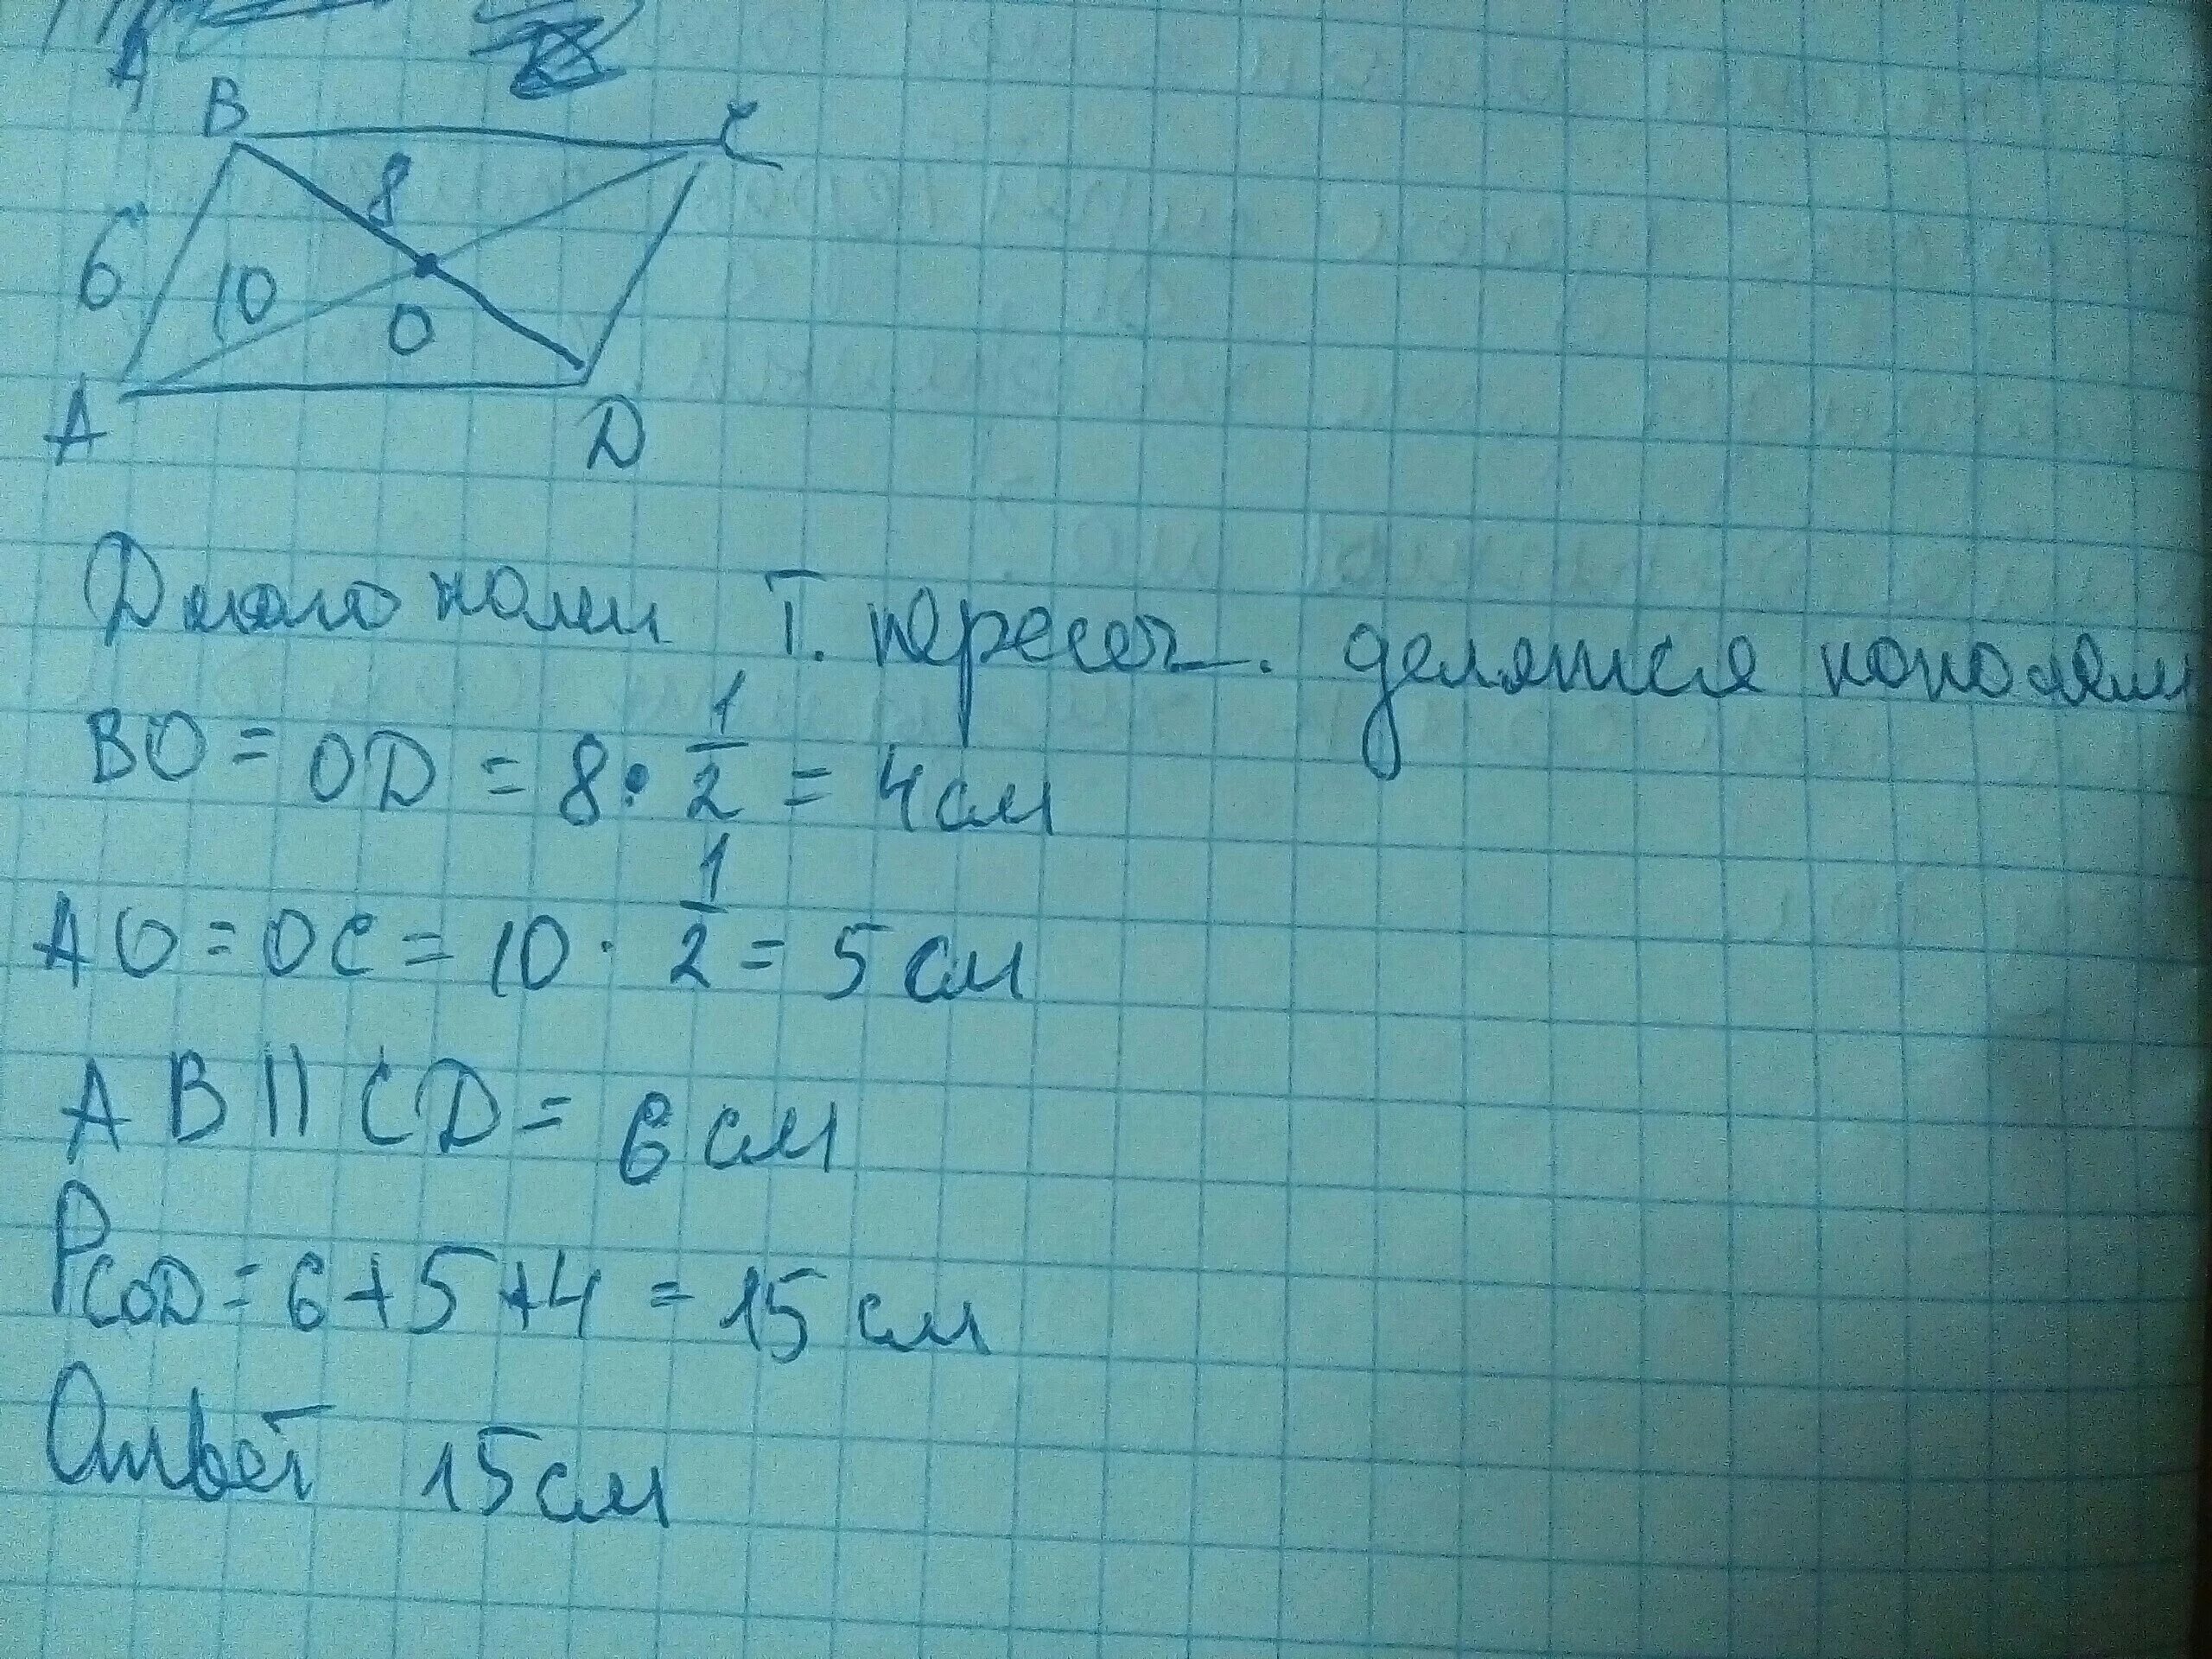 B C
8
6 10
O
A D
Диагонали т. пересеч. делятся пополам
BO = OD = 8 · 1/2 = 4 см
AO = OC = 10 · 1/2 = 5 см
AB || CD = 6 см
PCOD = 6 + 5 + 4 = 15 см
Ответ 15 см